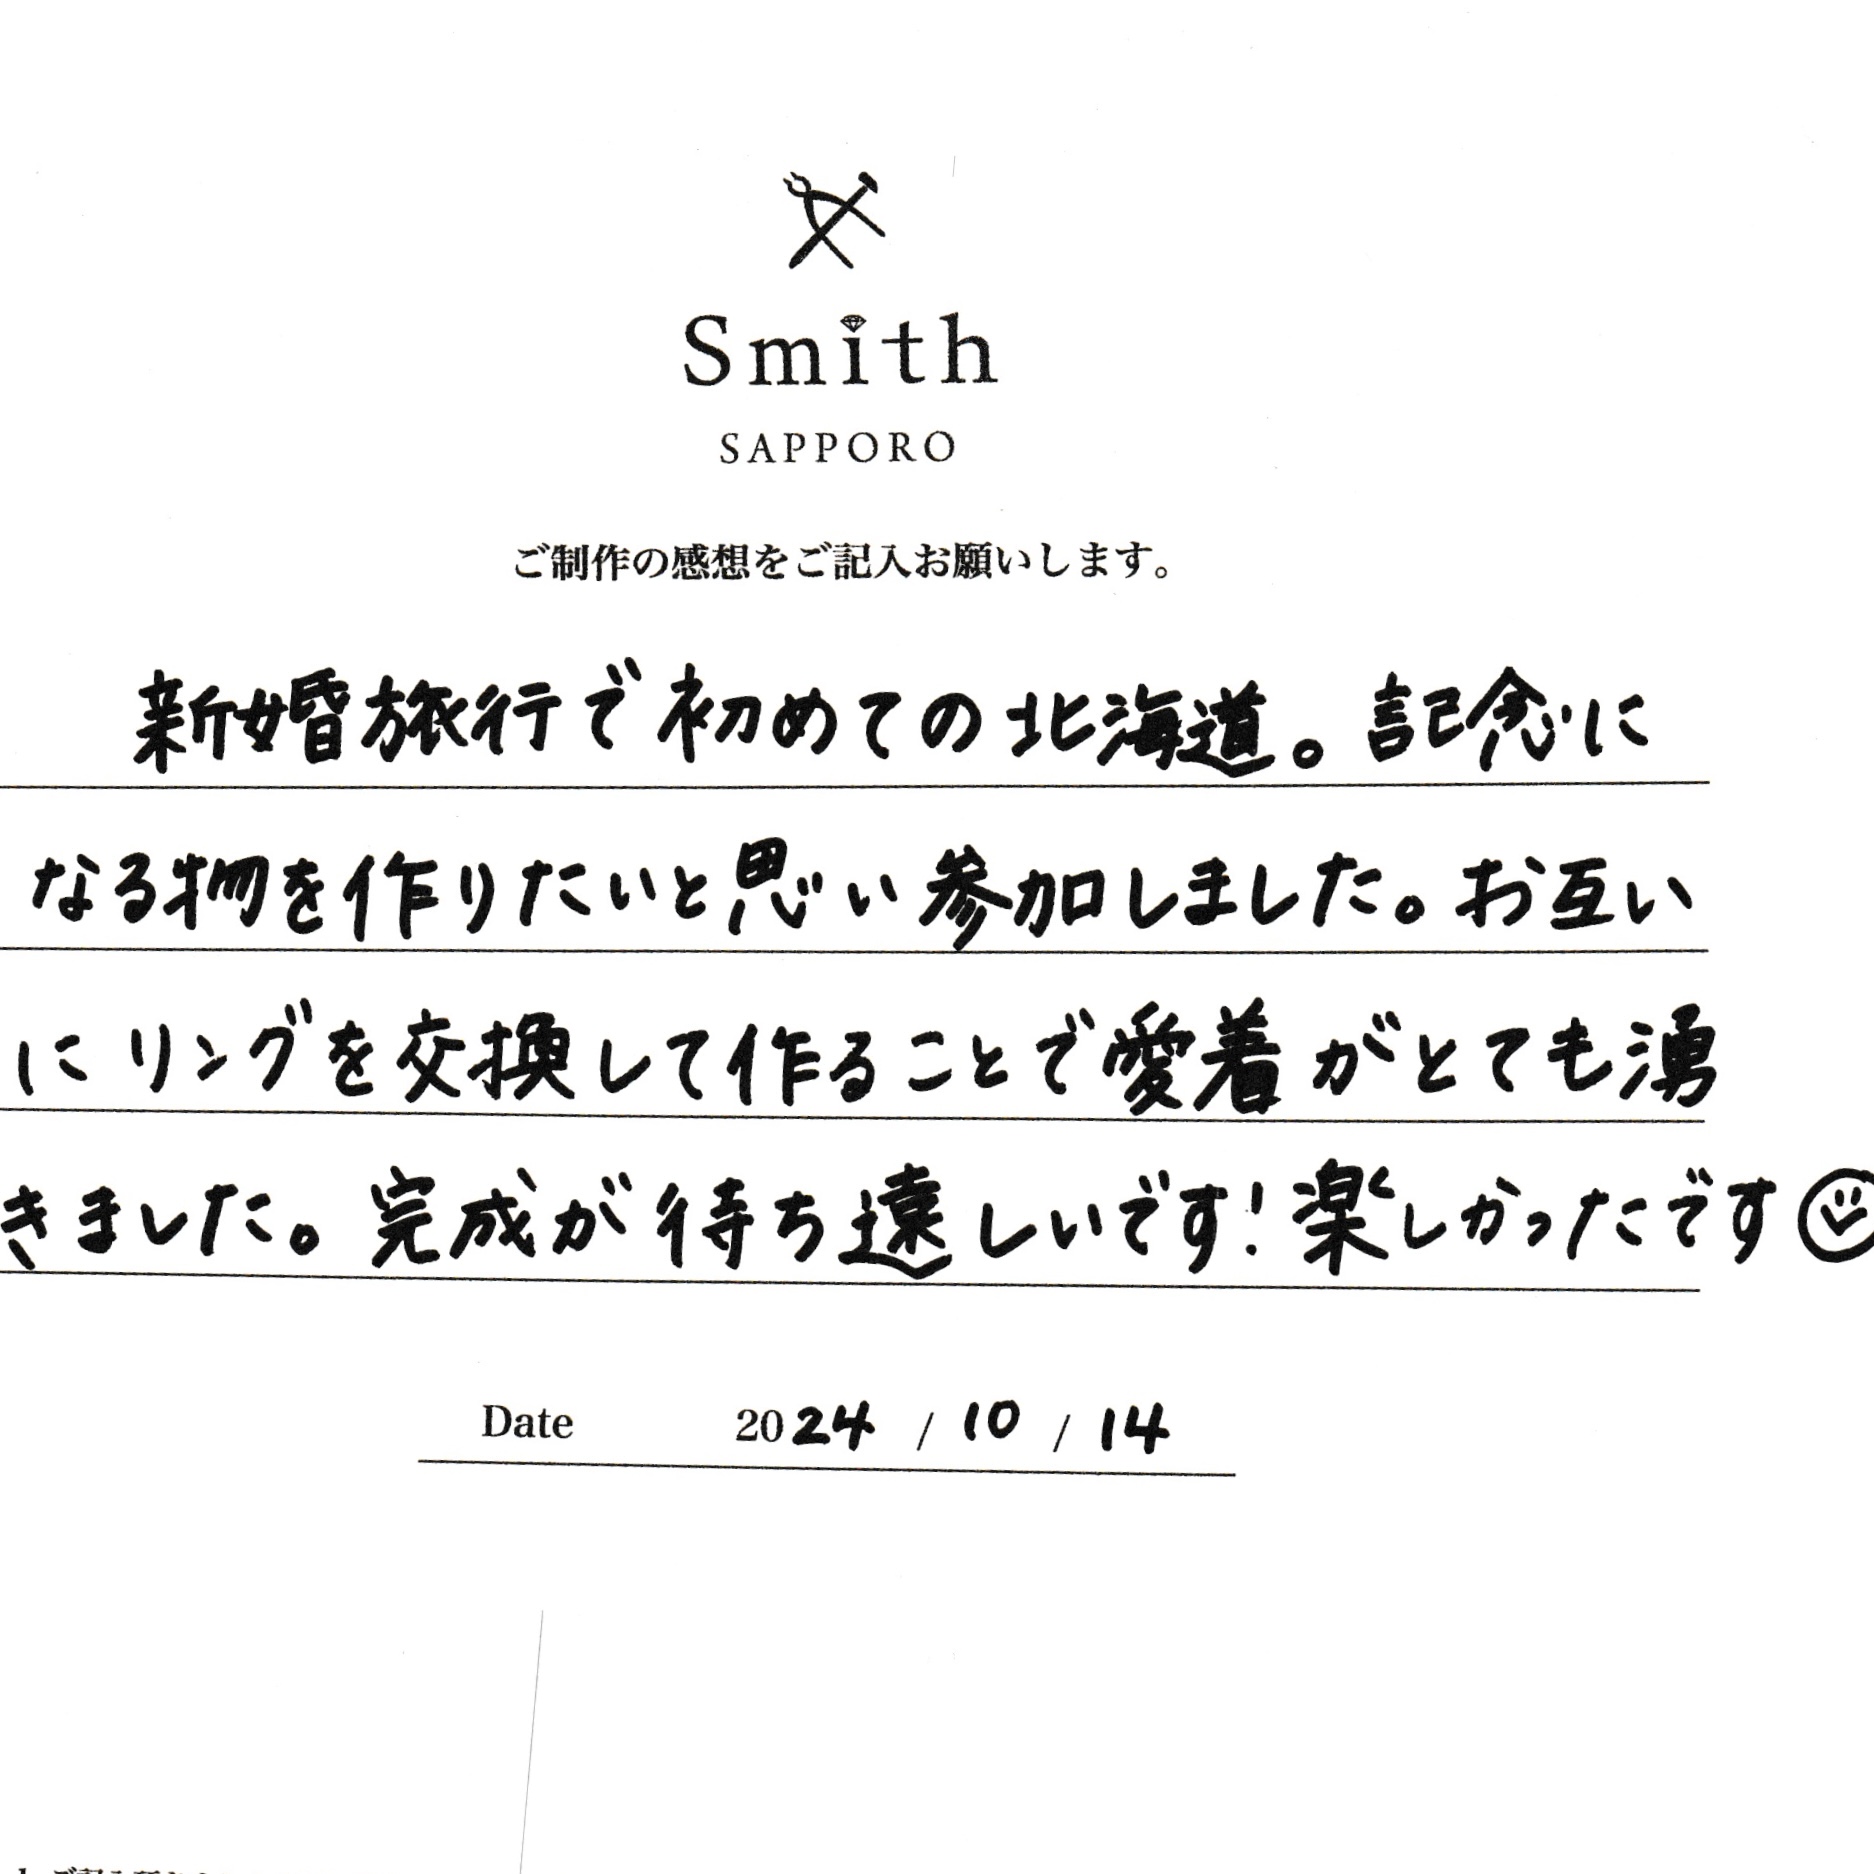 Smith
SAPPORO
ご制作の感想をご記入お願いします。
新婚旅行で初めての北海道。記念に
なる物を作りたいと思い参加しました。お互い
にリングを交換して作ることで愛着がとても湧
きました。完成が待ち遠しいです!楽しかったです
Date 2024 / 10 / 14